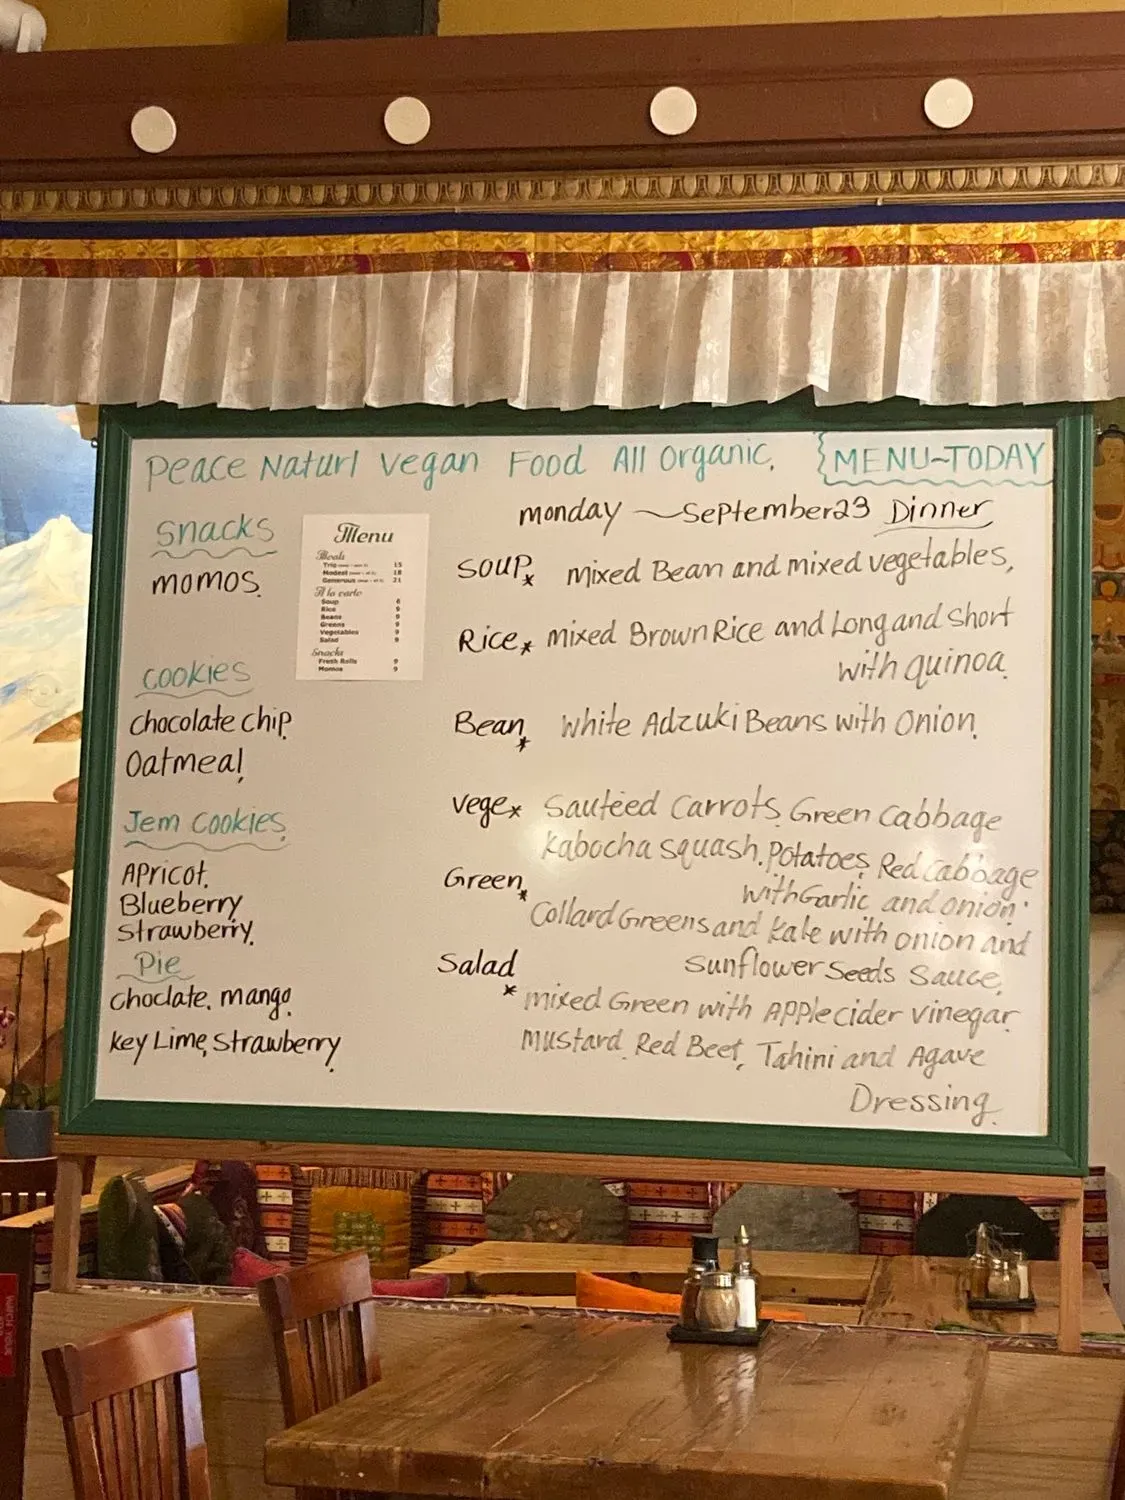 Peace Naturl Vegan Food All Organic.
MENU~TODAY
monday ~ September 23 Dinner
Snacks
momos.
Menu
Meals
Trio 15
Modest 18
Generous 21
A la carte
Soup 6
Rice 9
Beans 9
Greens 9
Vegetables 9
Salad 9
Snacks
Fresh Rolls 9
Momos 9
cookies
chocolate chip
Oatmeal,
Jem cookies.
Apricot.
Blueberry
Strawberry.
Pie
choclate. mango.
key Lime, Strawberry.
Soup* mixed Bean and mixed vegetables,
Rice* mixed Brown Rice and Long and Short
with quinoa.
Bean* white Adzuki Beans with Onion.
vege* Sauteed Carrots, Green Cabbage
kabocha squash, Potatoes, Red Cabbage
with Garlic and onion.
Green* Collard Greens and kale with onion and
Sunflower Seeds Sauce.
Salad* mixed Green with Apple cider vinegar
mustard, Red Beet, Tahini and Agave
Dressing.